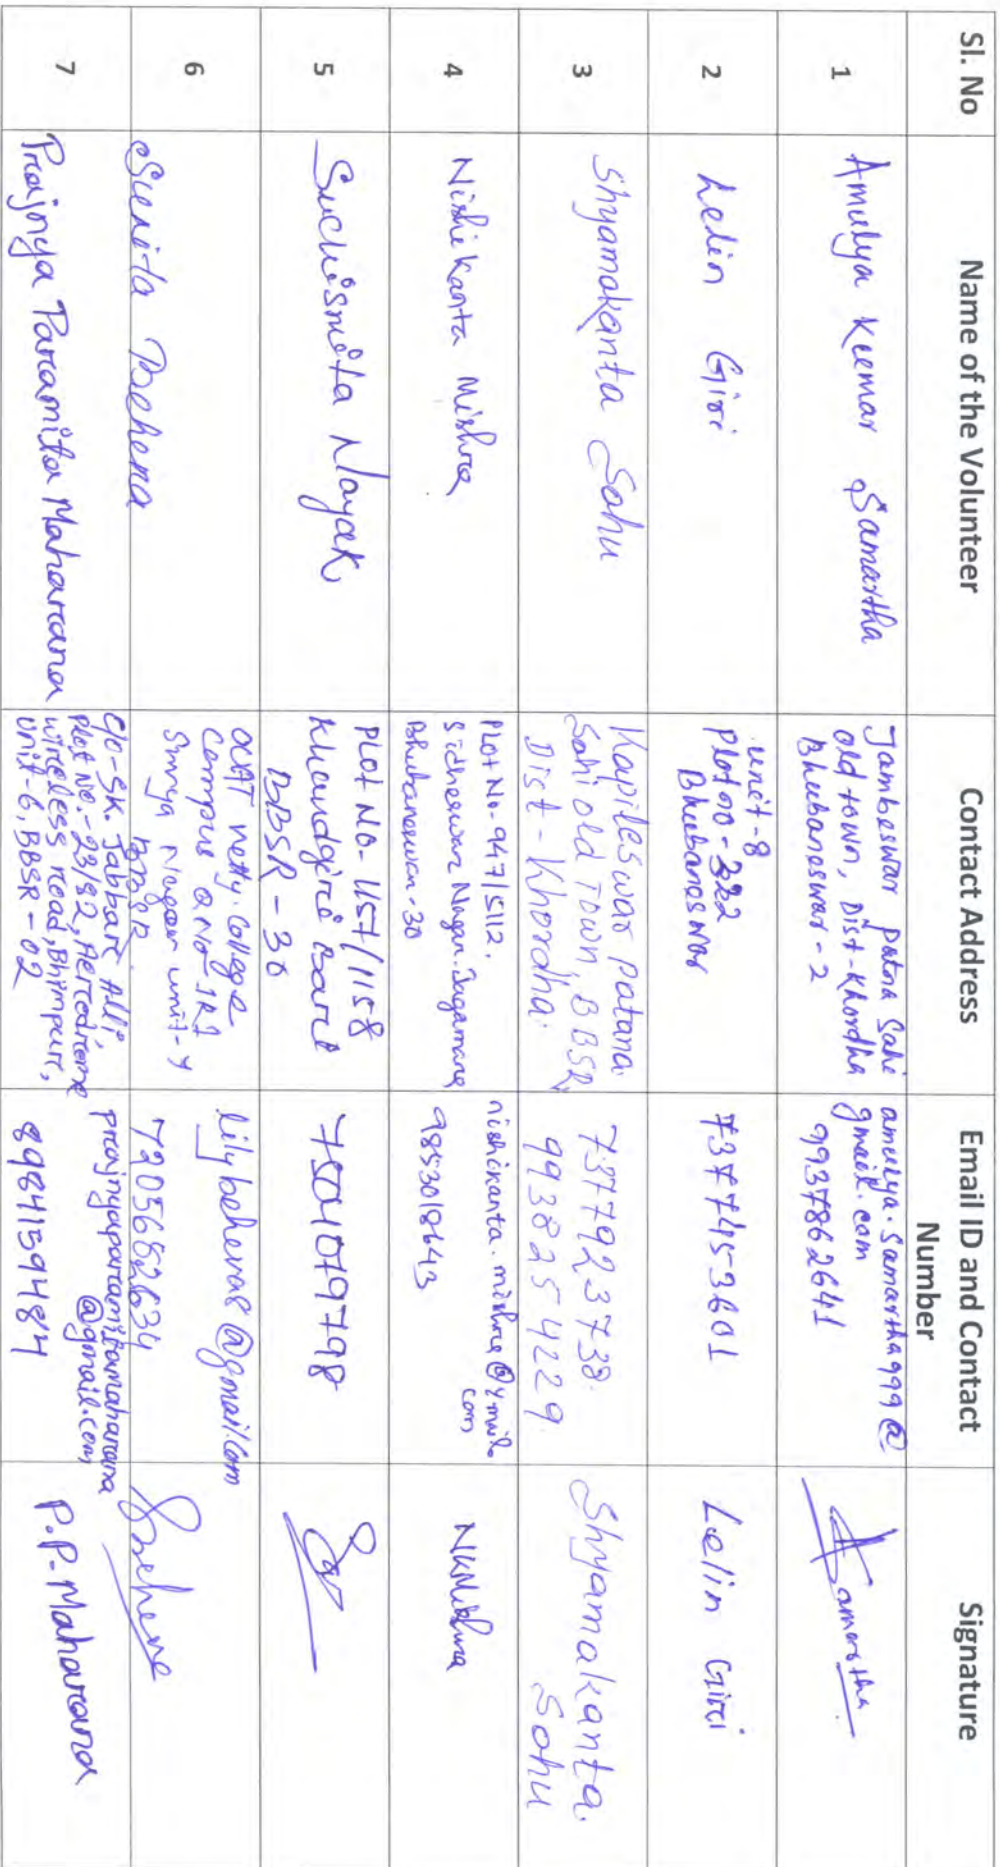 Sl. No Name of the Volunteer Contact Address Email ID and Contact Number Signature
1 Amulya Kumar Samartha
Jambeswar patna Sahi
old town, Dist-Khordha
Bhubaneswar-2
amulya.samartha999@
gmail.com
9937862641
Samartha
2 Lelin Giri
unit-8
plot no-322
Bhubaneswar
7377453601
Lelin Giri
3 Shyamakanta Sahu
Kapileswar Patana
Sahi old Town, BBSR,
Dist-Khordha.
7377923738.
9938254229.
Shyamakanta.
Sahu
4 Nishikanta Mishra
Plot No-947/5112.
Sidheswar Nagar. Jagamara
Bhubaneswar-30
nishikanta.mishra@ymail.
com
9853018643
NKMishra
5 Suchismita Nayak
PLot No-1157/1158
Khandgiri Bari
BBSR-30
7504079798
6 Sunita Behera
OUAT
College
Campus QNo-
Surya Nagar unit-4
BBSR
lilybehera8@gmail.com
7205682634
Behera
7 Prajnya Paramita Maharana
C/O-SK. Jabbar Alli,
Plot No.-23/92, Aerodrome
wireless road, Bhimpur,
Unit-6, BBSR-02
prajnyaparamitamaharana
@gmail.com,
8984159484
P.P-Maharana